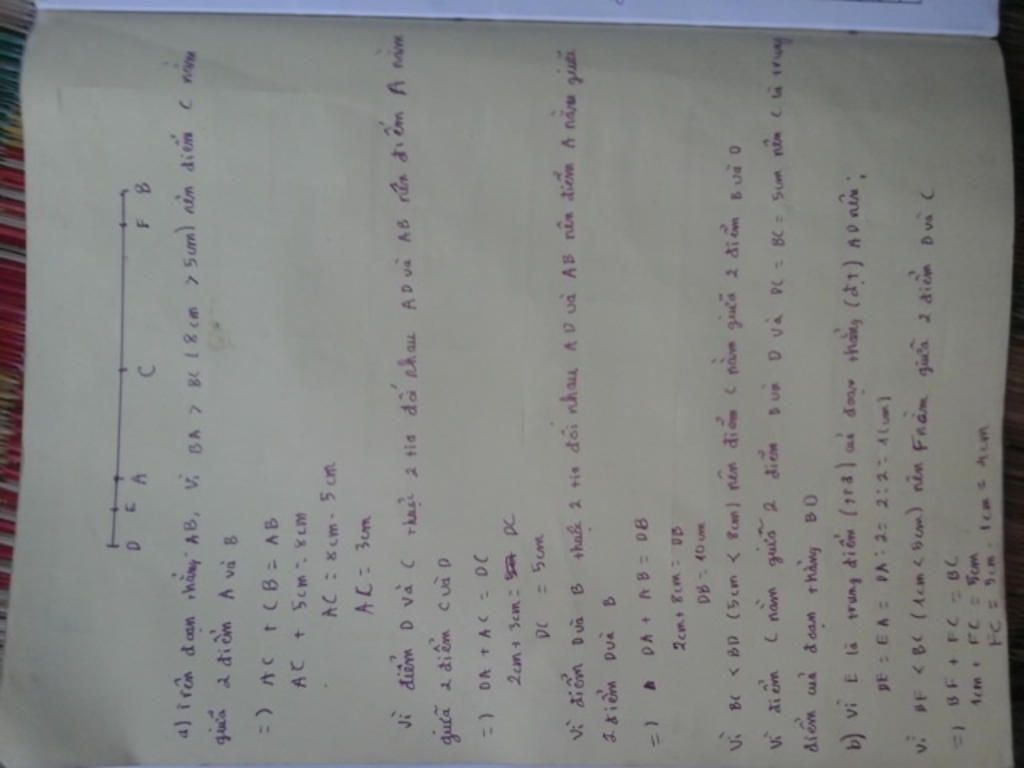 D E A C F B
a) Trên đoạn thẳng AB, vì BA > BC (8cm > 5cm) nên điểm C nằm
giữa 2 điểm A và B
=) AC + CB = AB
AC + 5cm = 8cm
AC = 8cm - 5cm
AC = 3cm
Vì điểm D và C thuộc 2 tia đối nhau AD và AB nên điểm A nằm
giữa 2 điểm C và D
=) DA + AC = DC
2cm + 3cm = DC
DC = 5cm
Vì điểm D và B thuộc 2 tia đối nhau AD và AB nên điểm A nằm giữa
2 điểm D và B
=) DA + AB = DB
2cm + 8cm = DB
DB = 10cm
Vì BC < BD (5cm < 8cm) nên điểm C nằm giữa 2 điểm B và D
Vì điểm C nằm giữa 2 điểm B và D và DC = BC = 5cm nên C là trung
điểm của đoạn thẳng BD
b) Vì E là trung điểm (trđ) của đoạn thẳng (đt) AD nên:
DE = EA = DA : 2 = 2 : 2 = 1(cm)
Vì BF < BC (1cm < 5cm) nên F nằm giữa 2 điểm B và C
=) BF + FC = BC
1cm + FC = 5cm
FC = 5cm - 1cm = 4cm